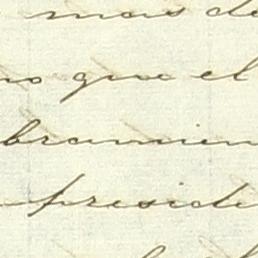 mas de
no que el
bramien
preside